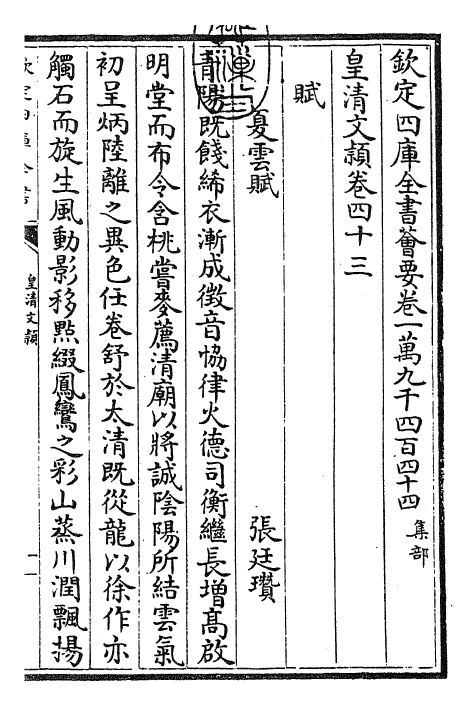 欽定四庫全書薈要卷一萬九千四百四十四 集部
皇清文穎卷四十三
賦
夏雲賦 張廷瓚
青陽既餞絺衣漸成徵音恊律火德司衡繼長增髙啟
明堂而布令含桃嘗麥薦清廟以將誠陰陽所結雲氣
初呈炳陸離之異色任卷舒於太清既從龍以徐作亦
觸石而旋生風動影移點綴鳳鸞之彩山蒸川潤飄揚
皇清文穎